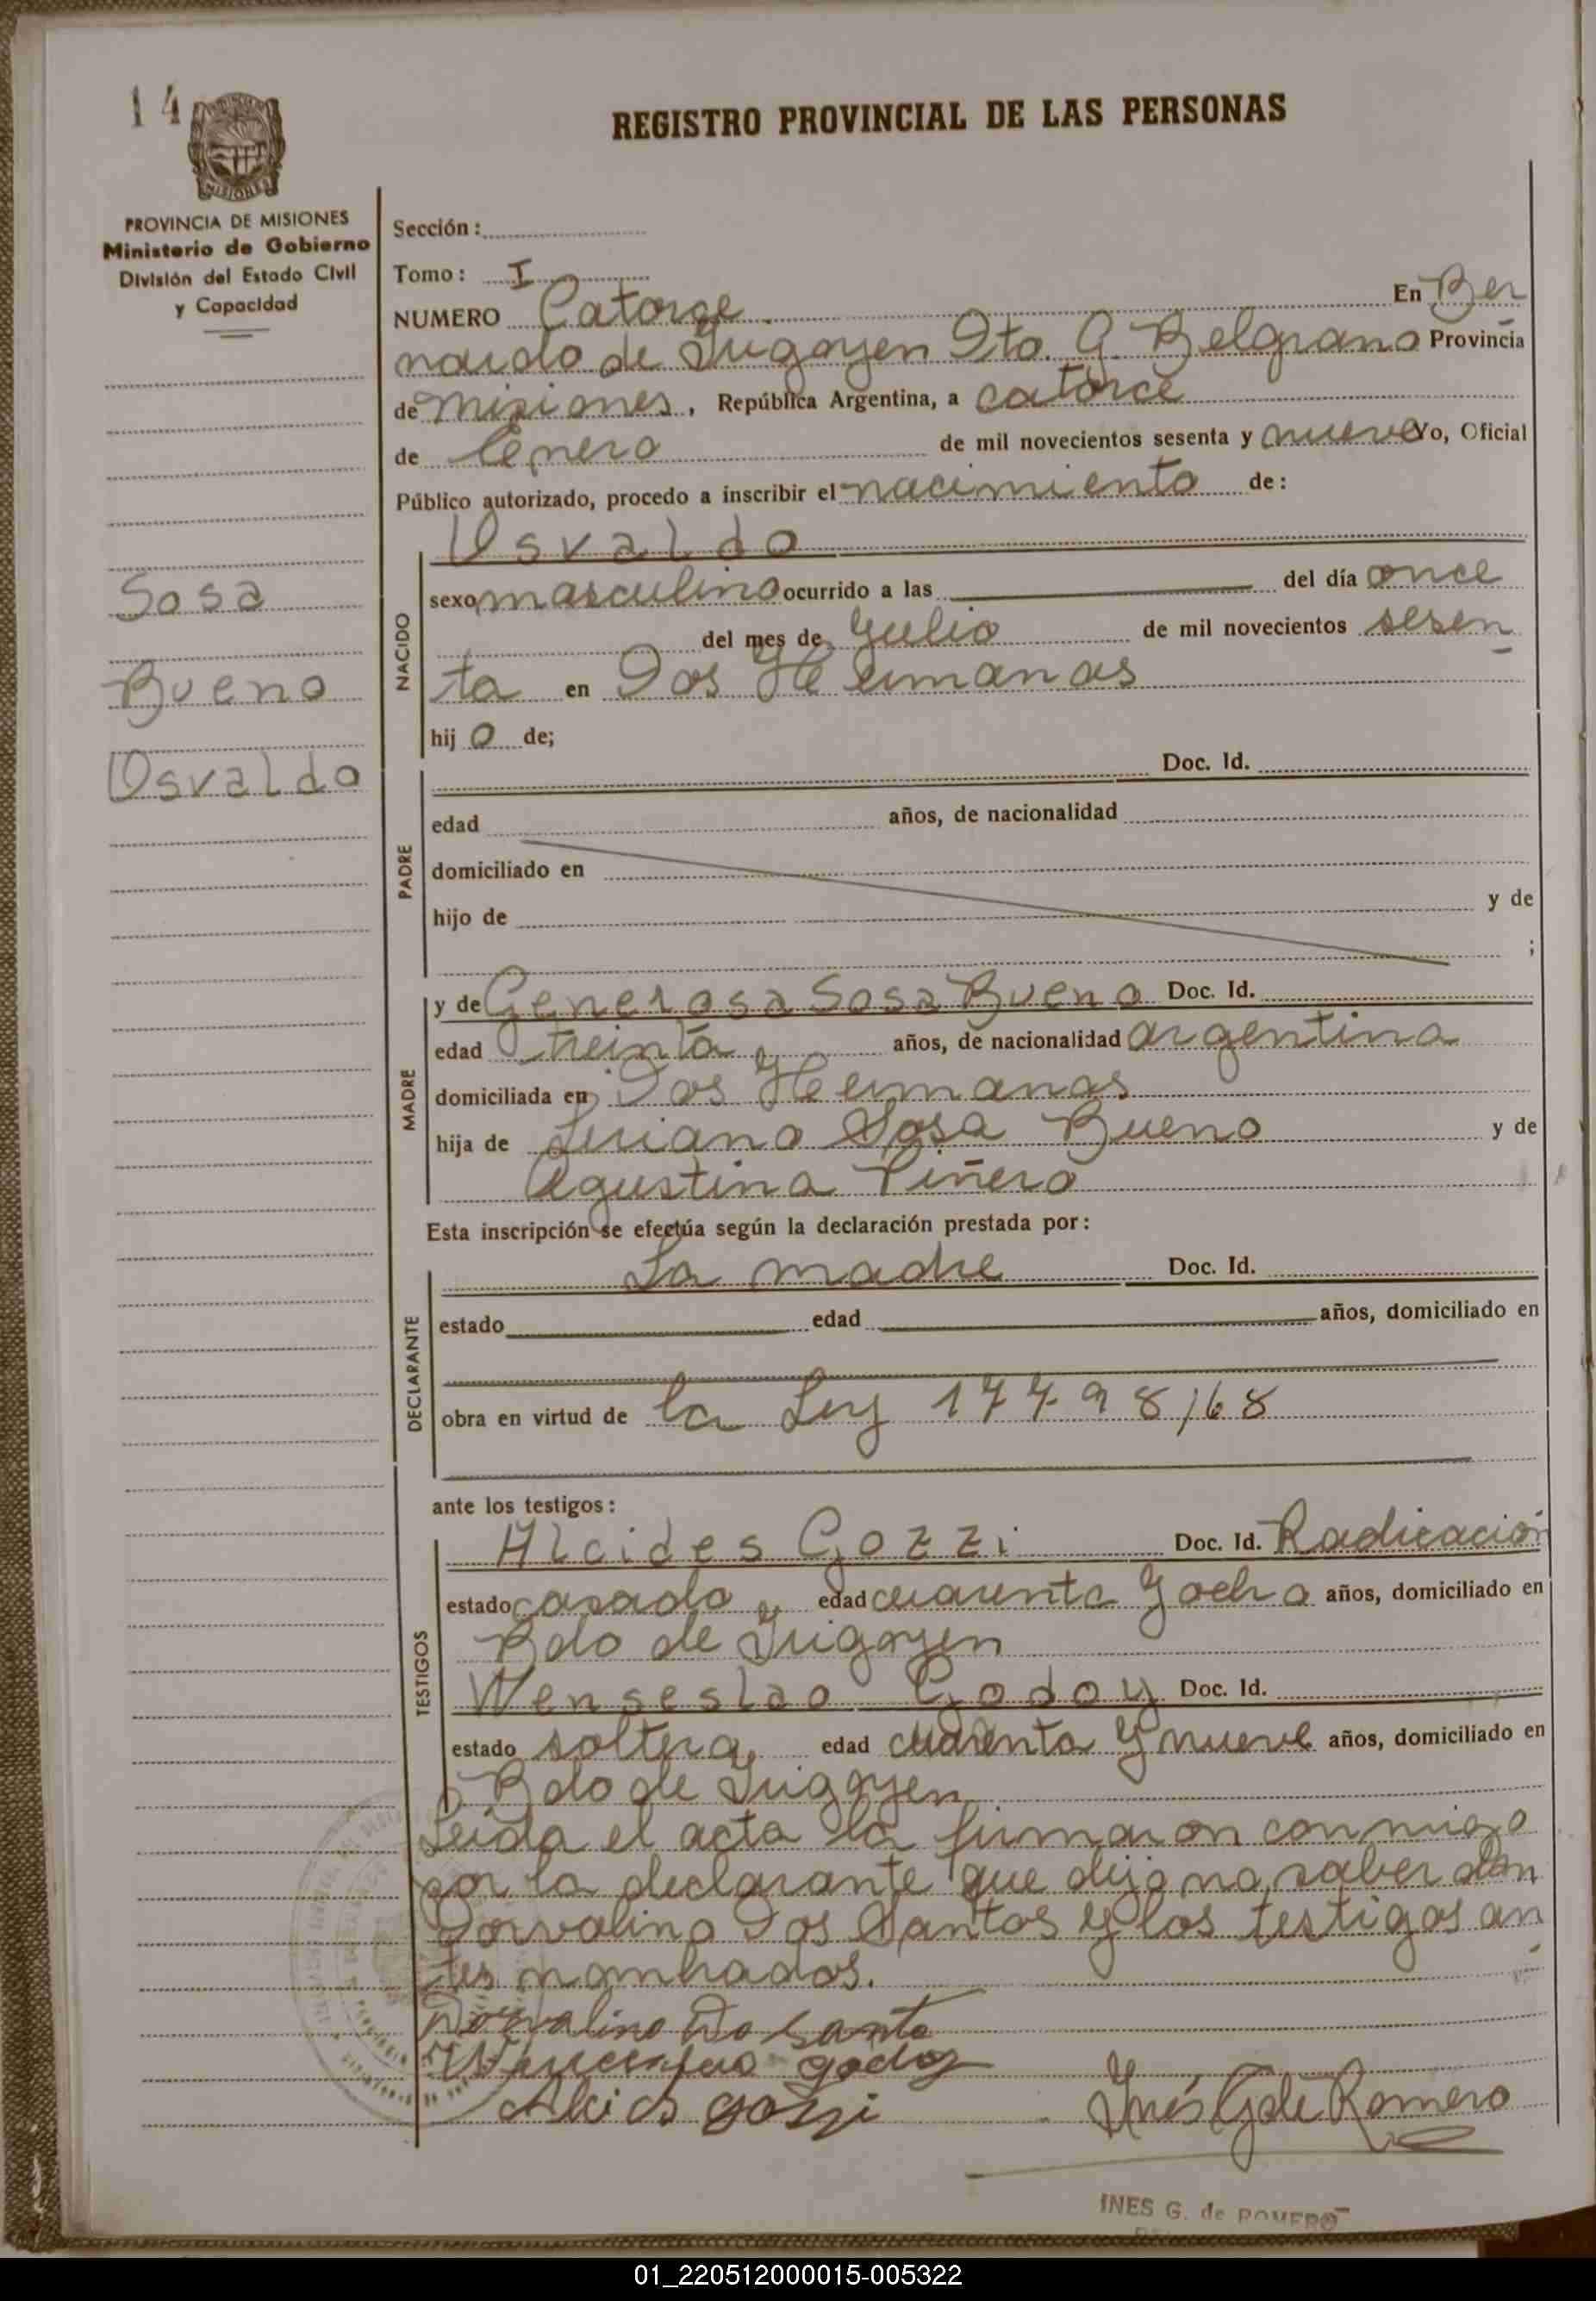 14
REGISTRO PROVINCIAL DE LAS PERSONAS
PROVINCIA DE MISIONES
Ministerio de Gobierno
División del Estado Civil
y Capacidad
Sosa
Bueno
Osvaldo
Sección:
Tomo: I
NUMERO Catorce En Ber
nardo de Irigoyen Dto. G. Belgrano Provincia
de Misiones, República Argentina, a catorce
de Enero de mil novecientos sesenta y nueve Yo, Oficial
Público autorizado, procedo a inscribir el nacimiento de:
NACIDO
Osvaldo
sexo masculino ocurrido a las del día once
del mes de Julio de mil novecientos sesen
ta en Dos Hermanas
hijo de;
PADRE
Doc. Id.
edad años, de nacionalidad
domiciliado en
hijo de y de
;
MADRE
y de Generosa Sosa Bueno Doc. Id.
edad treinta, años, de nacionalidad argentina
domiciliada en Dos Hermanas
hija de Sosa Bueno y de
Agustina Piñero
Esta inscripción se efectúa según la declaración prestada por:
DECLARANTE
La madre Doc. Id.
estado edad años, domiciliado en
obra en virtud de la Ley 17798/68
ante los testigos:
TESTIGOS
Alcides Gozzi Doc. Id. Radicación
estado casado, edad cuarenta y ocho años, domiciliado en
Bdo de Irigoyen
Wenseslao Godoy Doc. Id.
estado soltero, edad cuarenta y nueve años, domiciliado en
Bdo de Irigoyen
Leída el acta la firmaron conmigo
por la declarante que dijo no saber don
Dorvalino Dos Santos y los testigos an
tes nombrados.
Dorvalino Do Santo
Wenceslao godoy
Alcides gozzi
Inés G de Romero
INES G. de ROMERO
01_220512000015-005322